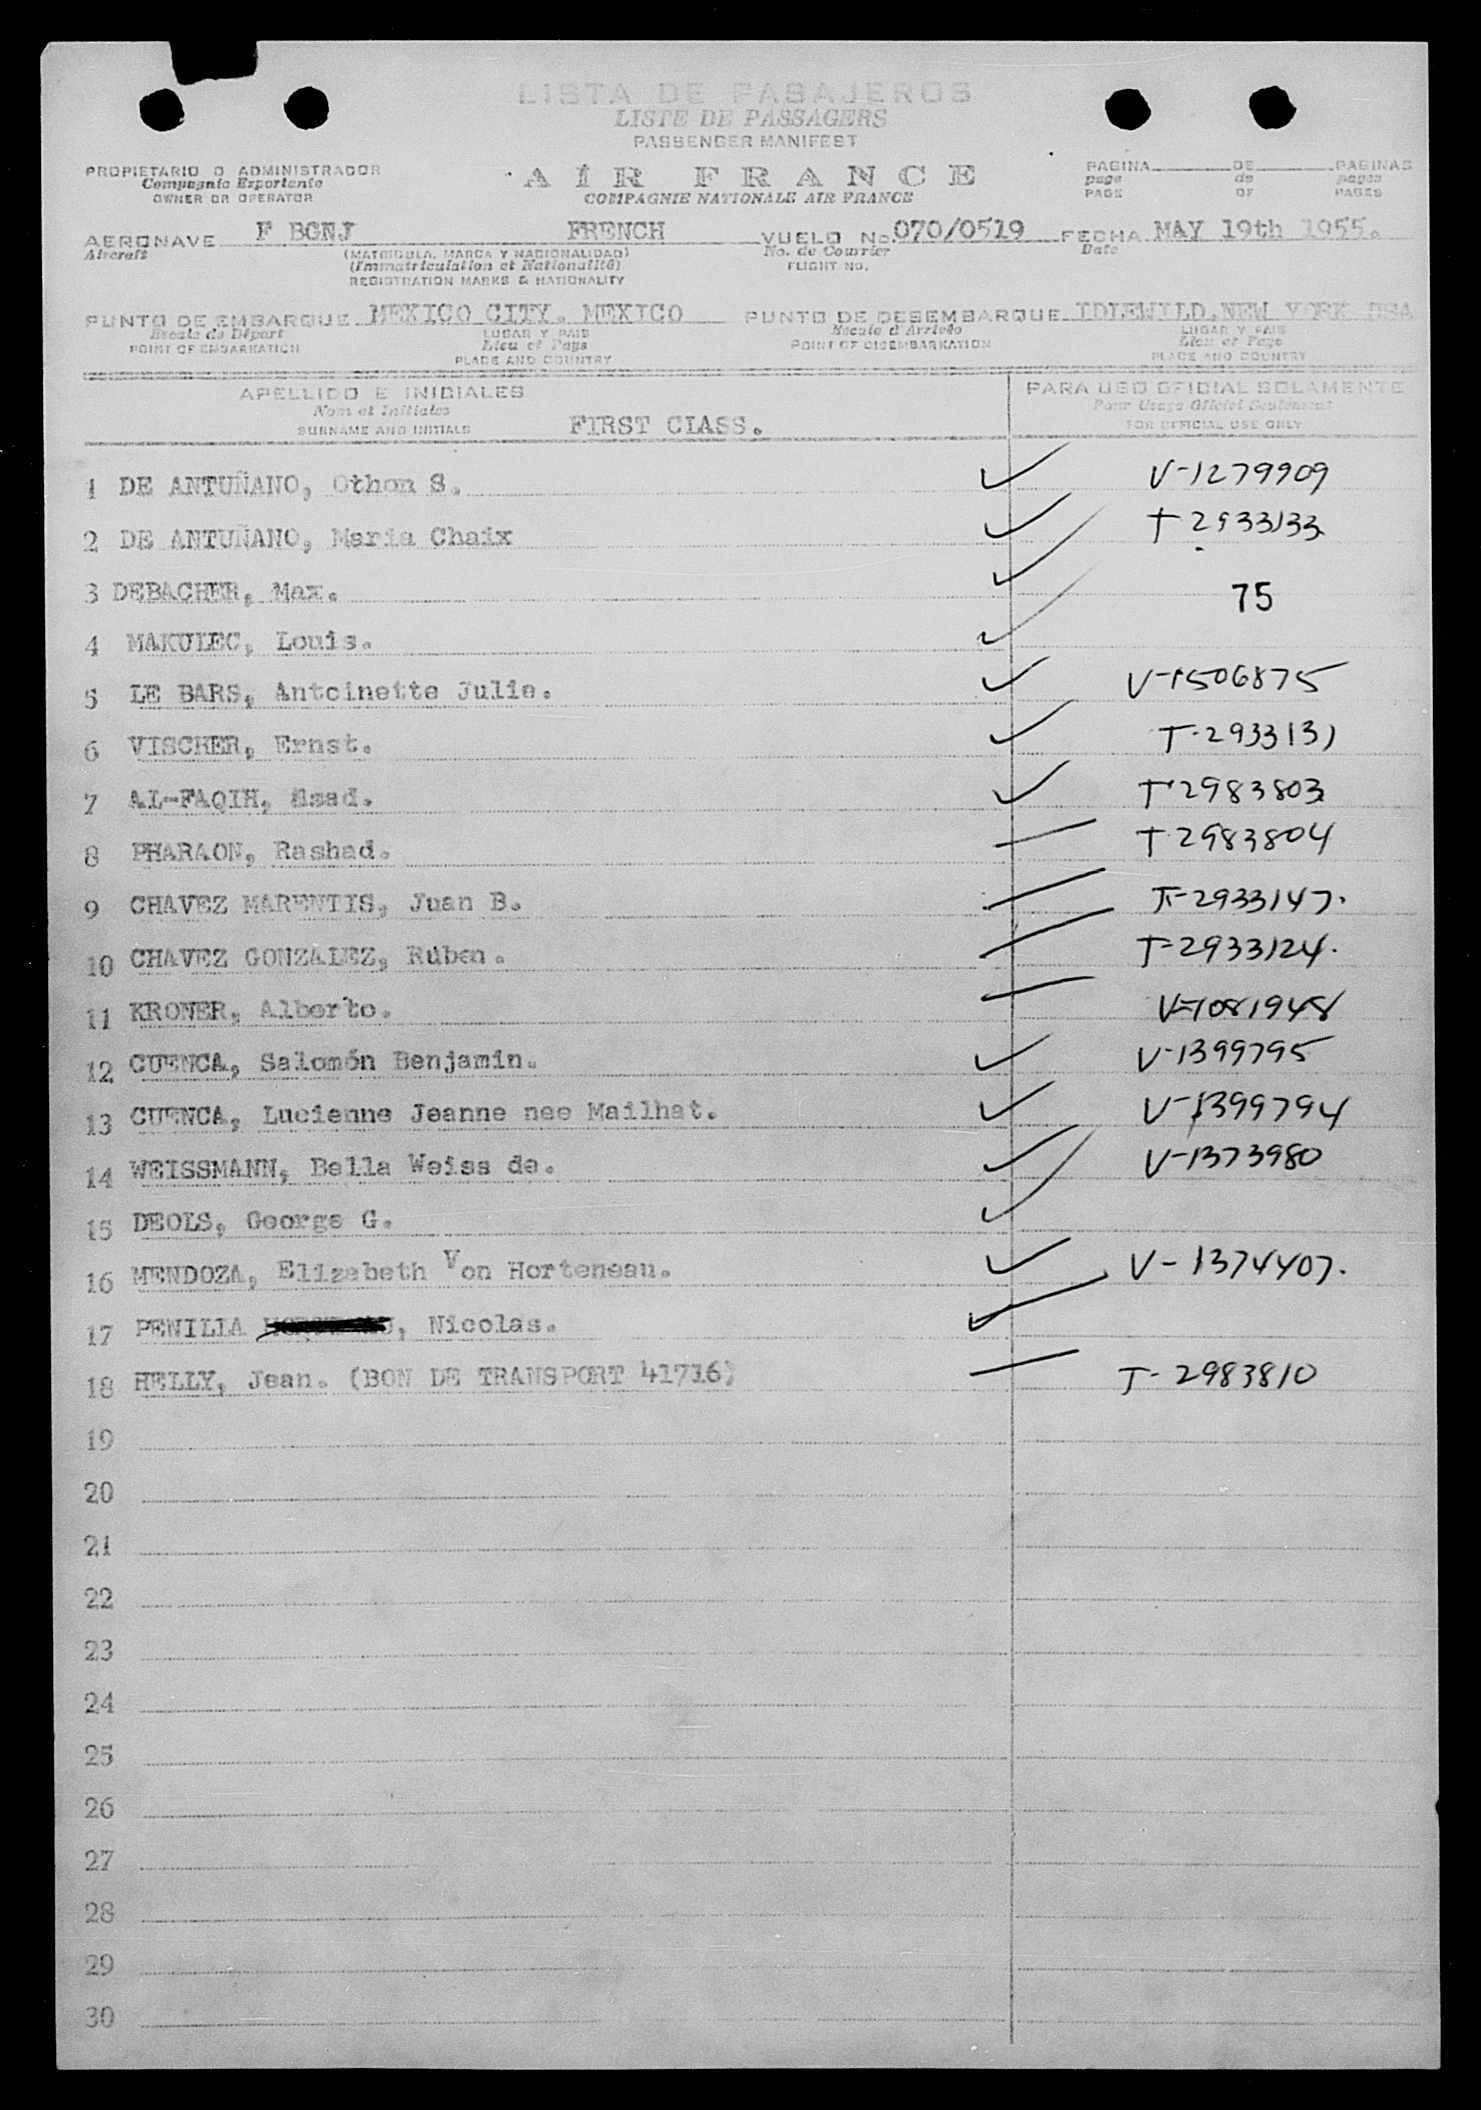 LISTA DE PASAJEROS
LISTE DE PASSAGERS
PASSENGER MANIFEST
PROPIETARIO O ADMINISTRADOR
Compagnie Exportante
OWNER OR OPERATOR
AIR FRANCE
COMPAGNIE NATIONALE AIR FRANCE
PAGINA DE PAGINAS
page de pages
PAGE OF PAGES
AERONAVE F BGNJ FRENCH VUELO No. 070/0519 FECHA MAY 19th 1955.
Aircraft (MATRICULA, MARCA Y NACIONALIDAD) No. de Courrier Date
(Immatriculation et Nationalité) FLIGHT NO.
REGISTRATION MARKS & NATIONALITY
PUNTO DE EMBARQUE MEXICO CITY. MEXICO PUNTO DE DESEMBARQUE IDLEWILD.NEW YORK USA
Escale de Départ LUGAR Y PAIS Escale d'Arrivée LUGAR Y PAIS
POINT OF EMBARKATION Lieu et Pays POINT OF DISEMBARKATION Lieu et Pays
PLACE AND COUNTRY PLACE AND COUNTRY
APELLIDO E INICIALES PARA USO OFICIAL SOLAMENTE
Nom et Initiales Pour Usage Officiel Seulement
SURNAME AND INITIALS FIRST CLASS. FOR OFFICIAL USE ONLY
1 DE ANTUÑANO, Othon S. V-1279909
2 DE ANTUÑANO, Maria Chaix T 2933133
3 DEBACHER, Max. 75
4 MAKULEC, Louis.
5 LE BARS, Antoinette Julie. V-1506875
6 VISCHER, Ernst. T-2933131
7 AL-FAQIH, Asad. T-2983803
8 PHARAON, Rashad. T 2983804
9 CHAVEZ MARENTIS, Juan B. T-2933147.
10 CHAVEZ GONZALEZ, Ruben. T-2933124.
11 KRONER, Alberto. V-1081948
12 CUENCA, Salomón Benjamin. V-1399795
13 CUENCA, Lucienne Jeanne nee Mailhat. V-1399794
14 WEISSMANN, Bella Weiss de. V-1373980
15 DEOLS, George G.
16 MENDOZA, Elizabeth Von Horteneau. V-1374407.
17 PENILLA , Nicolas.
18 HELLY, Jean. (BON DE TRANSPORT 41716) T-2983810
19
20
21
22
23
24
25
26
27
28
29
30